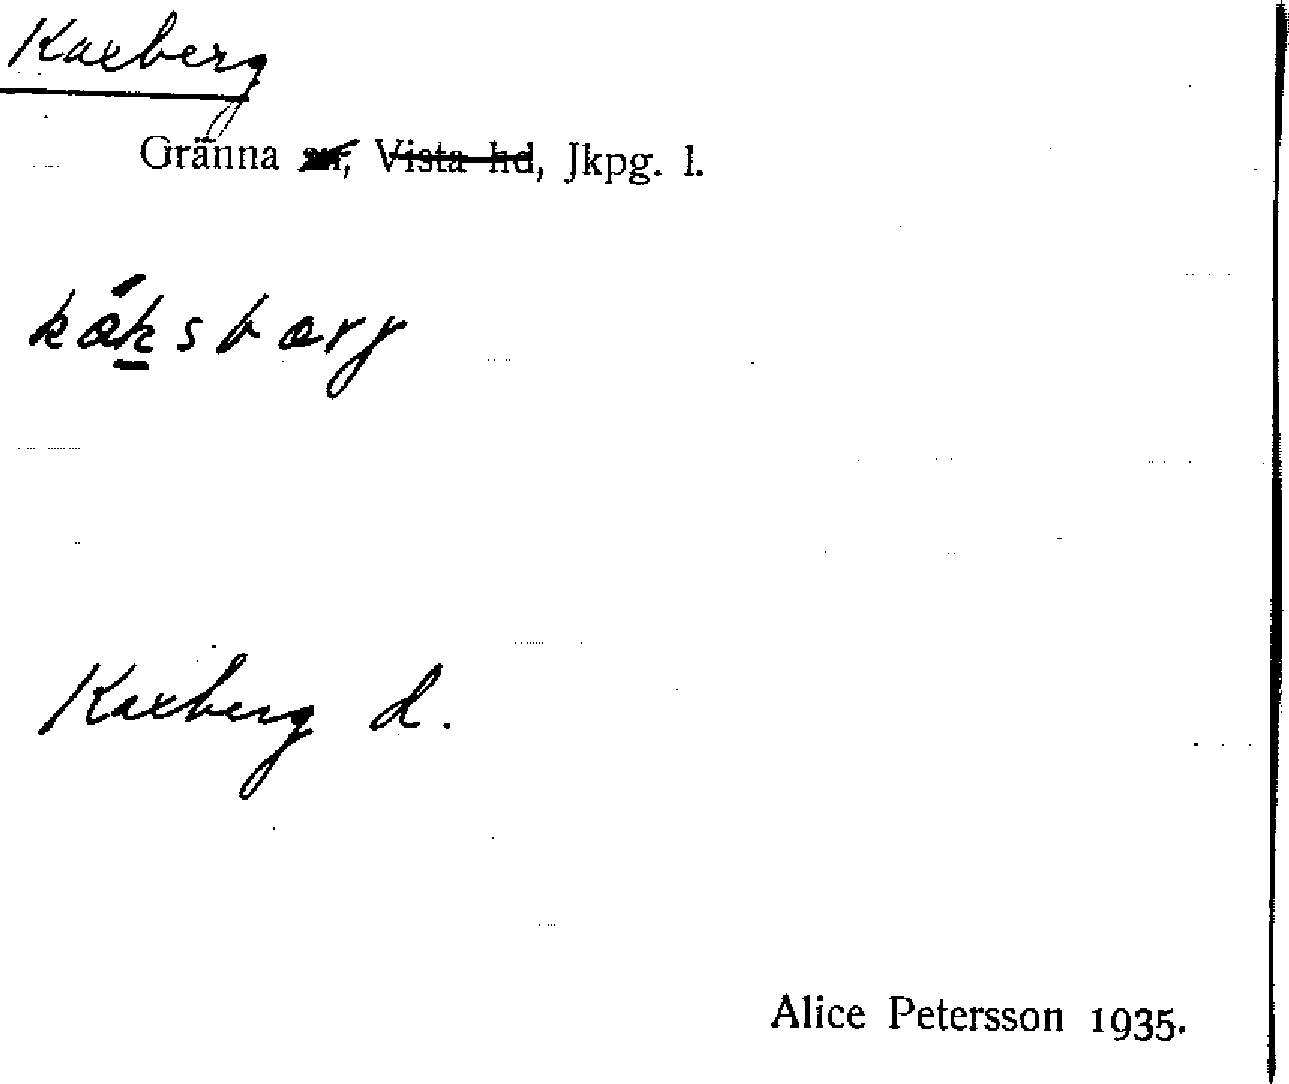 Kaxberg
Gränna , Vista hd, Jkpg. l.
Kaxberg d.
Alice Petersson 1935.